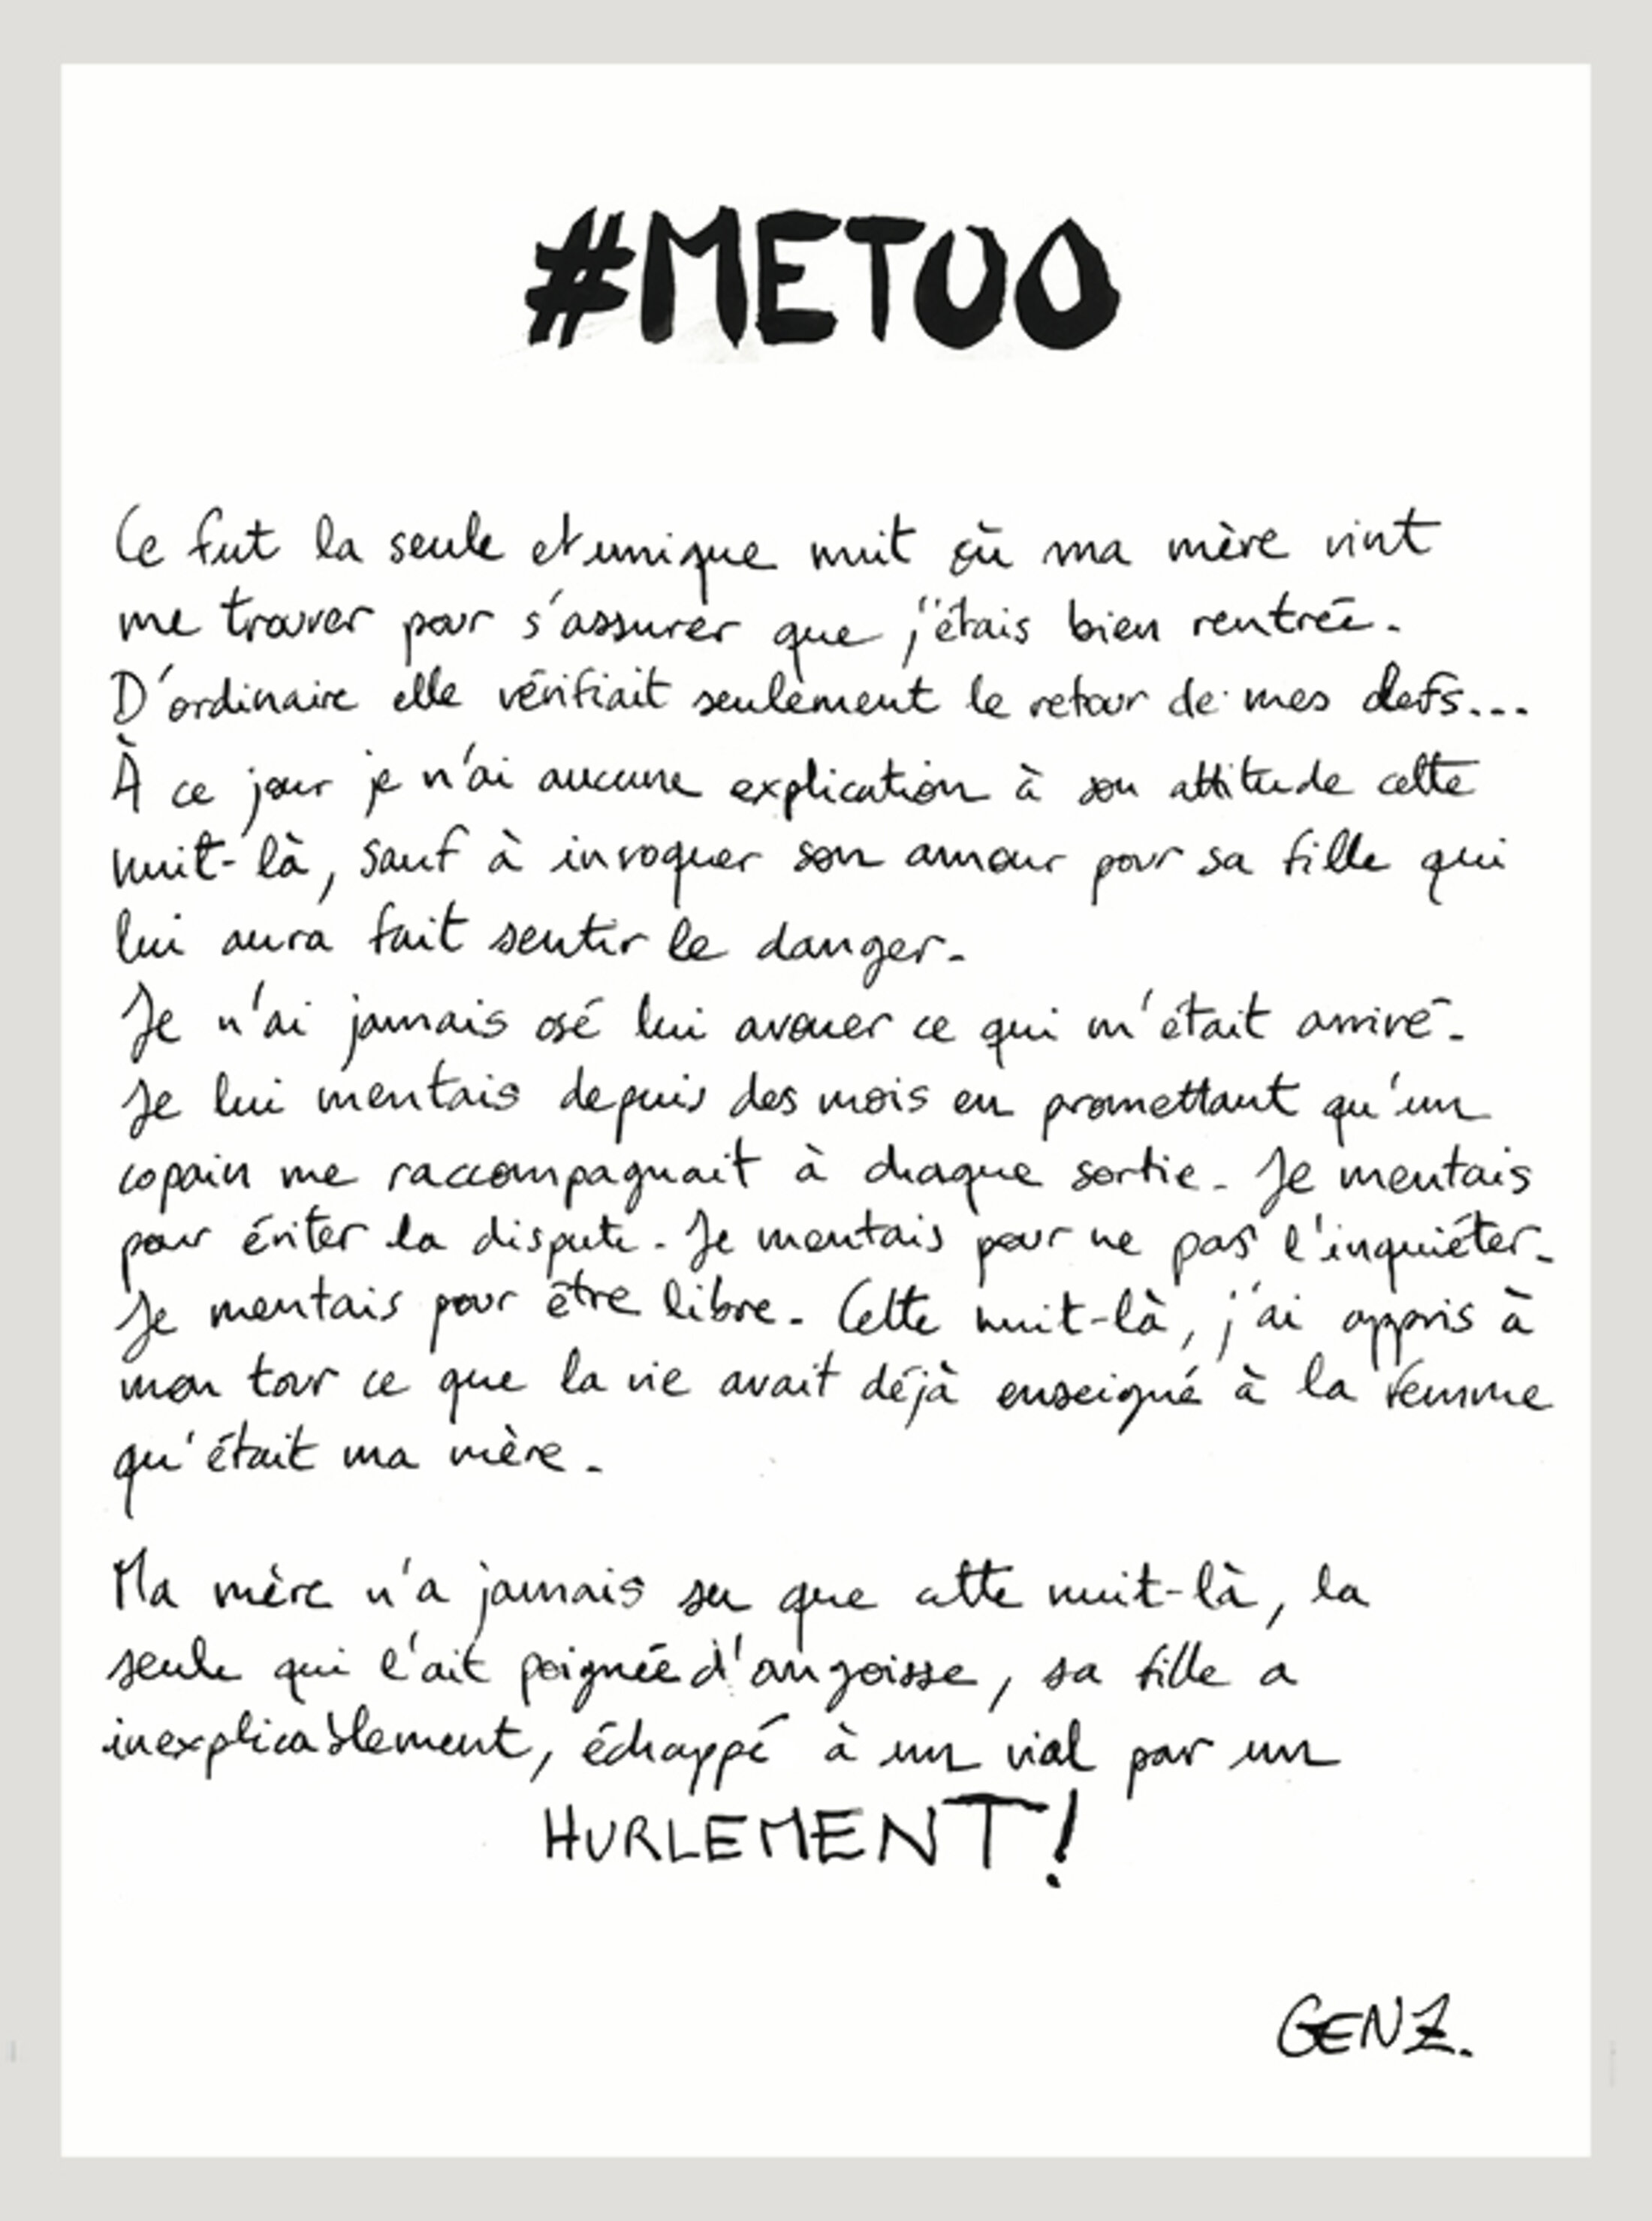 #METUO
Ce fut la seule et unique nuit où ma mère vint
me trouver pour s'assurer que j'étais bien rentrée.
D'ordinaire elle vérifiait seulement le retour de mes clefs...
À ce jour je n'ai aucune explication à son attitude cette
nuit-là, sauf à invoquer son amour pour sa fille qui
lui aura fait sentir le danger.
Je n'ai jamais osé lui avouer ce qui m'était arrivé.
Je lui mentais depuis des mois en promettant qu'un
copain me raccompagnait à chaque sortie. Je mentais
pour éviter la dispute. Je mentais pour ne pas l'inquiéter.
Je mentais pour être libre. Cette nuit-là, j'ai appris à
mon tour ce que la vie avait déjà enseigné à la femme
qu'était ma mère.
Ma mère n'a jamais su que cette nuit-là, la
seule qui l'ait poignée d'angoisse, sa fille a
inexplicablement, échappé à un viol par un
HURLEMENT!
GENZ.